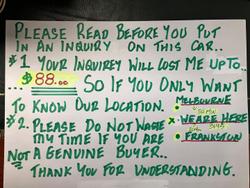 PLEASE READ BEFORE YOU PUT
IN AN INQUIRY ON THIS CAR..
#1 YOUR INQUIREY WILL LOST ME UP TO..
$88.00 SO IF YOU ONLY WANT
TO KNOW OUR LOCATION. MELBOURNE
50 MIN
#2. PLEASE DO NOT WASTE x WE ARE HERE
MY TIME IF YOU ARE FRANKSTON
NOT A GENUINE BUYER..
THANK YOU FOR UNDERSTANDING.